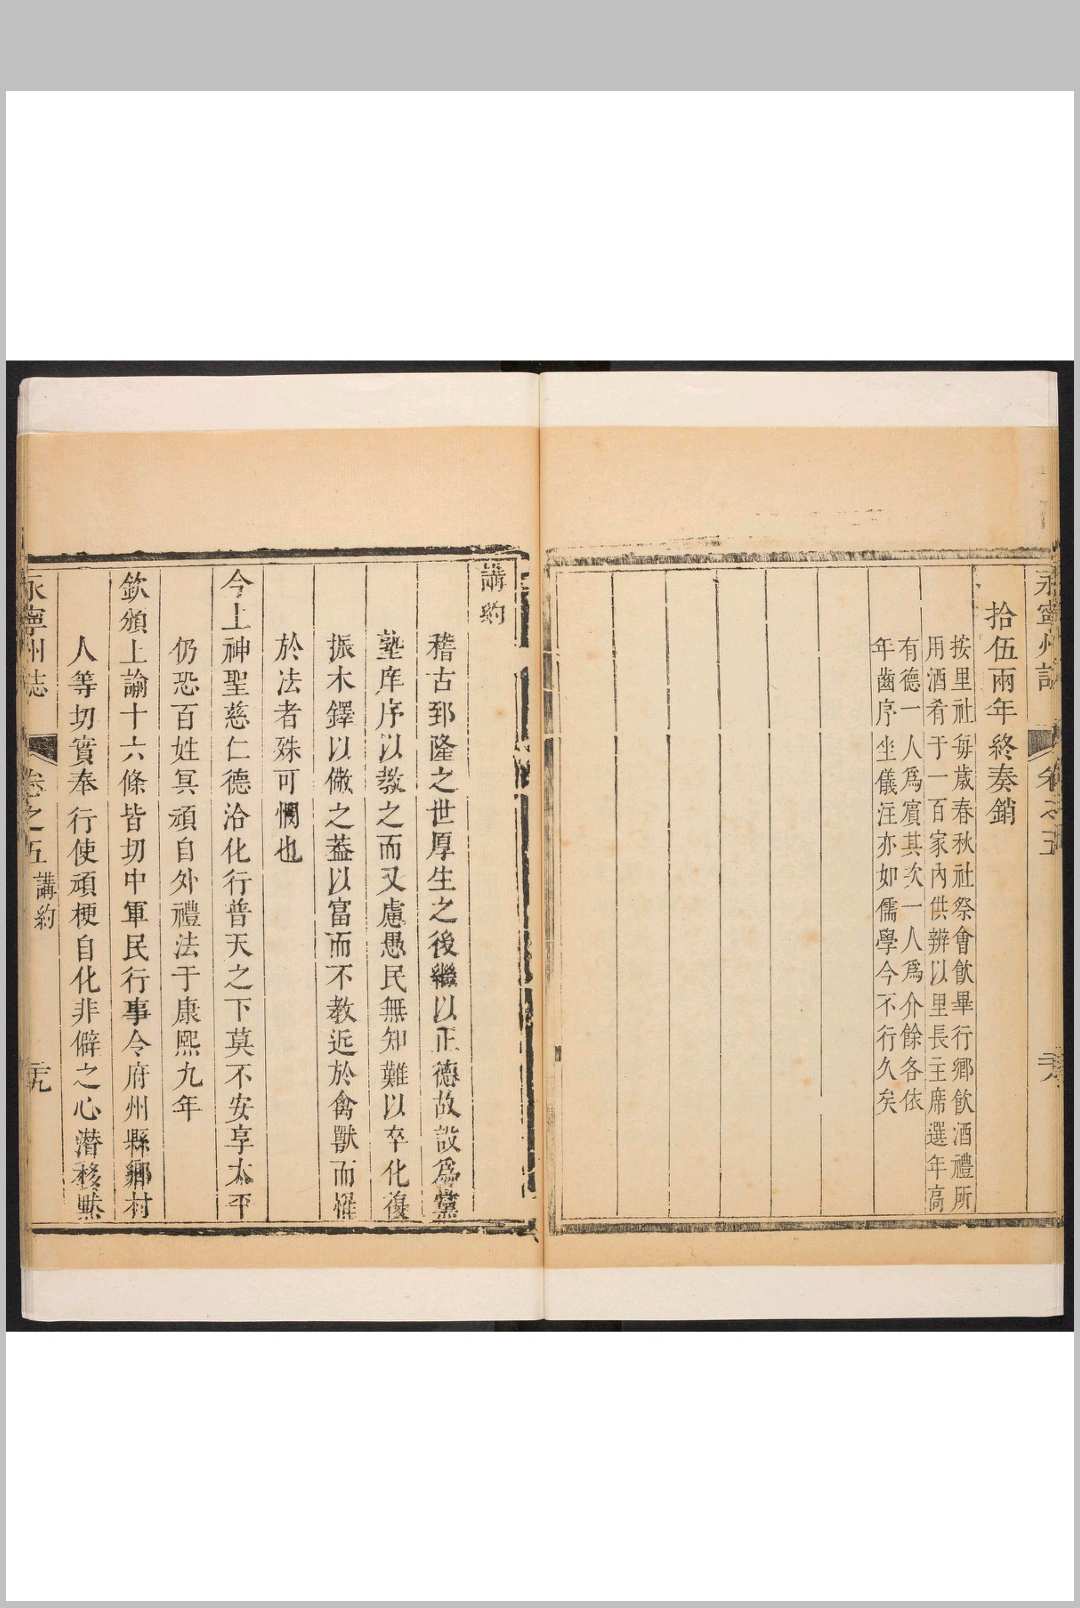 永寧州誌
卷之五
三十八
拾伍兩年終奏銷
按里社每歲春秋社祭會飲畢行鄉飲酒禮所
用酒肴于一百家內供辦以里長主席選年高
有德一人爲賔其次一人爲介餘各依
年齒序坐儀注亦如儒學今不行久矣
講約
稽古郅隆之世厚生之後繼以正德故設爲黨
塾庠序以教之而又慮愚民無知難以卒化復
振木鐸以儆之葢以富而不教近於禽獸而懼
於法者殊可憫也
今上神聖慈仁德洽化行普天之下莫不安享太平
仍恐百姓冥頑自外禮法于康熙九年
欽頒上諭十六條皆切中軍民行事令府州縣鄉村
人等切實奉行使頑梗自化非僻之心潛移黙
永寧州誌
卷之五
講約
三十九